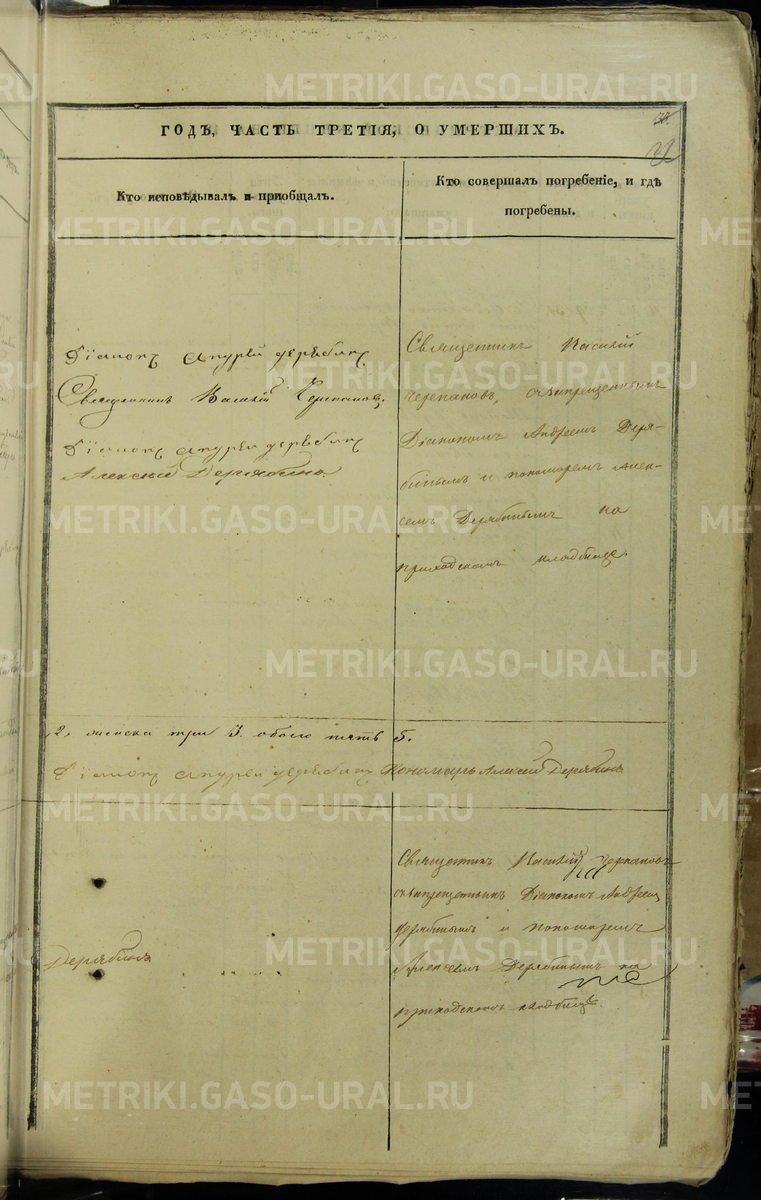 ГОДЪ, ЧАСТЬ ТРЕТІЯ, О УМЕРШИХЪ.
Кто исповѣдывалъ и пріобщалъ.
Кто совершалъ погребеніе, и гдѣ
погребены.
Діаконъ Андрей Дерябинъ
Священникъ Василій Черепановъ
Діаконъ Андрей Дерябинъ
Алексѣй Дерябинъ
Священникъ Василій
Черепановъ, съ
Діакономъ Андреемъ Деря-
бинымъ и пономаремъ Алек-
сеемъ Дерябинымъ на
приходскомъ кладбище.
2, женска три 3. обоего пять 5.
Діаконъ Андрей Дерябинъ Пономарь Алексѣй Дерябинъ
Дерябинъ
Священникъ Василій Черепановъ
Діакономъ Андреемъ
Дерябинымъ и пономаремъ
Алексеемъ Дерябинымъ на
приходскомъ кладбищѣ.
METRIKI.GASO-URAL.RU